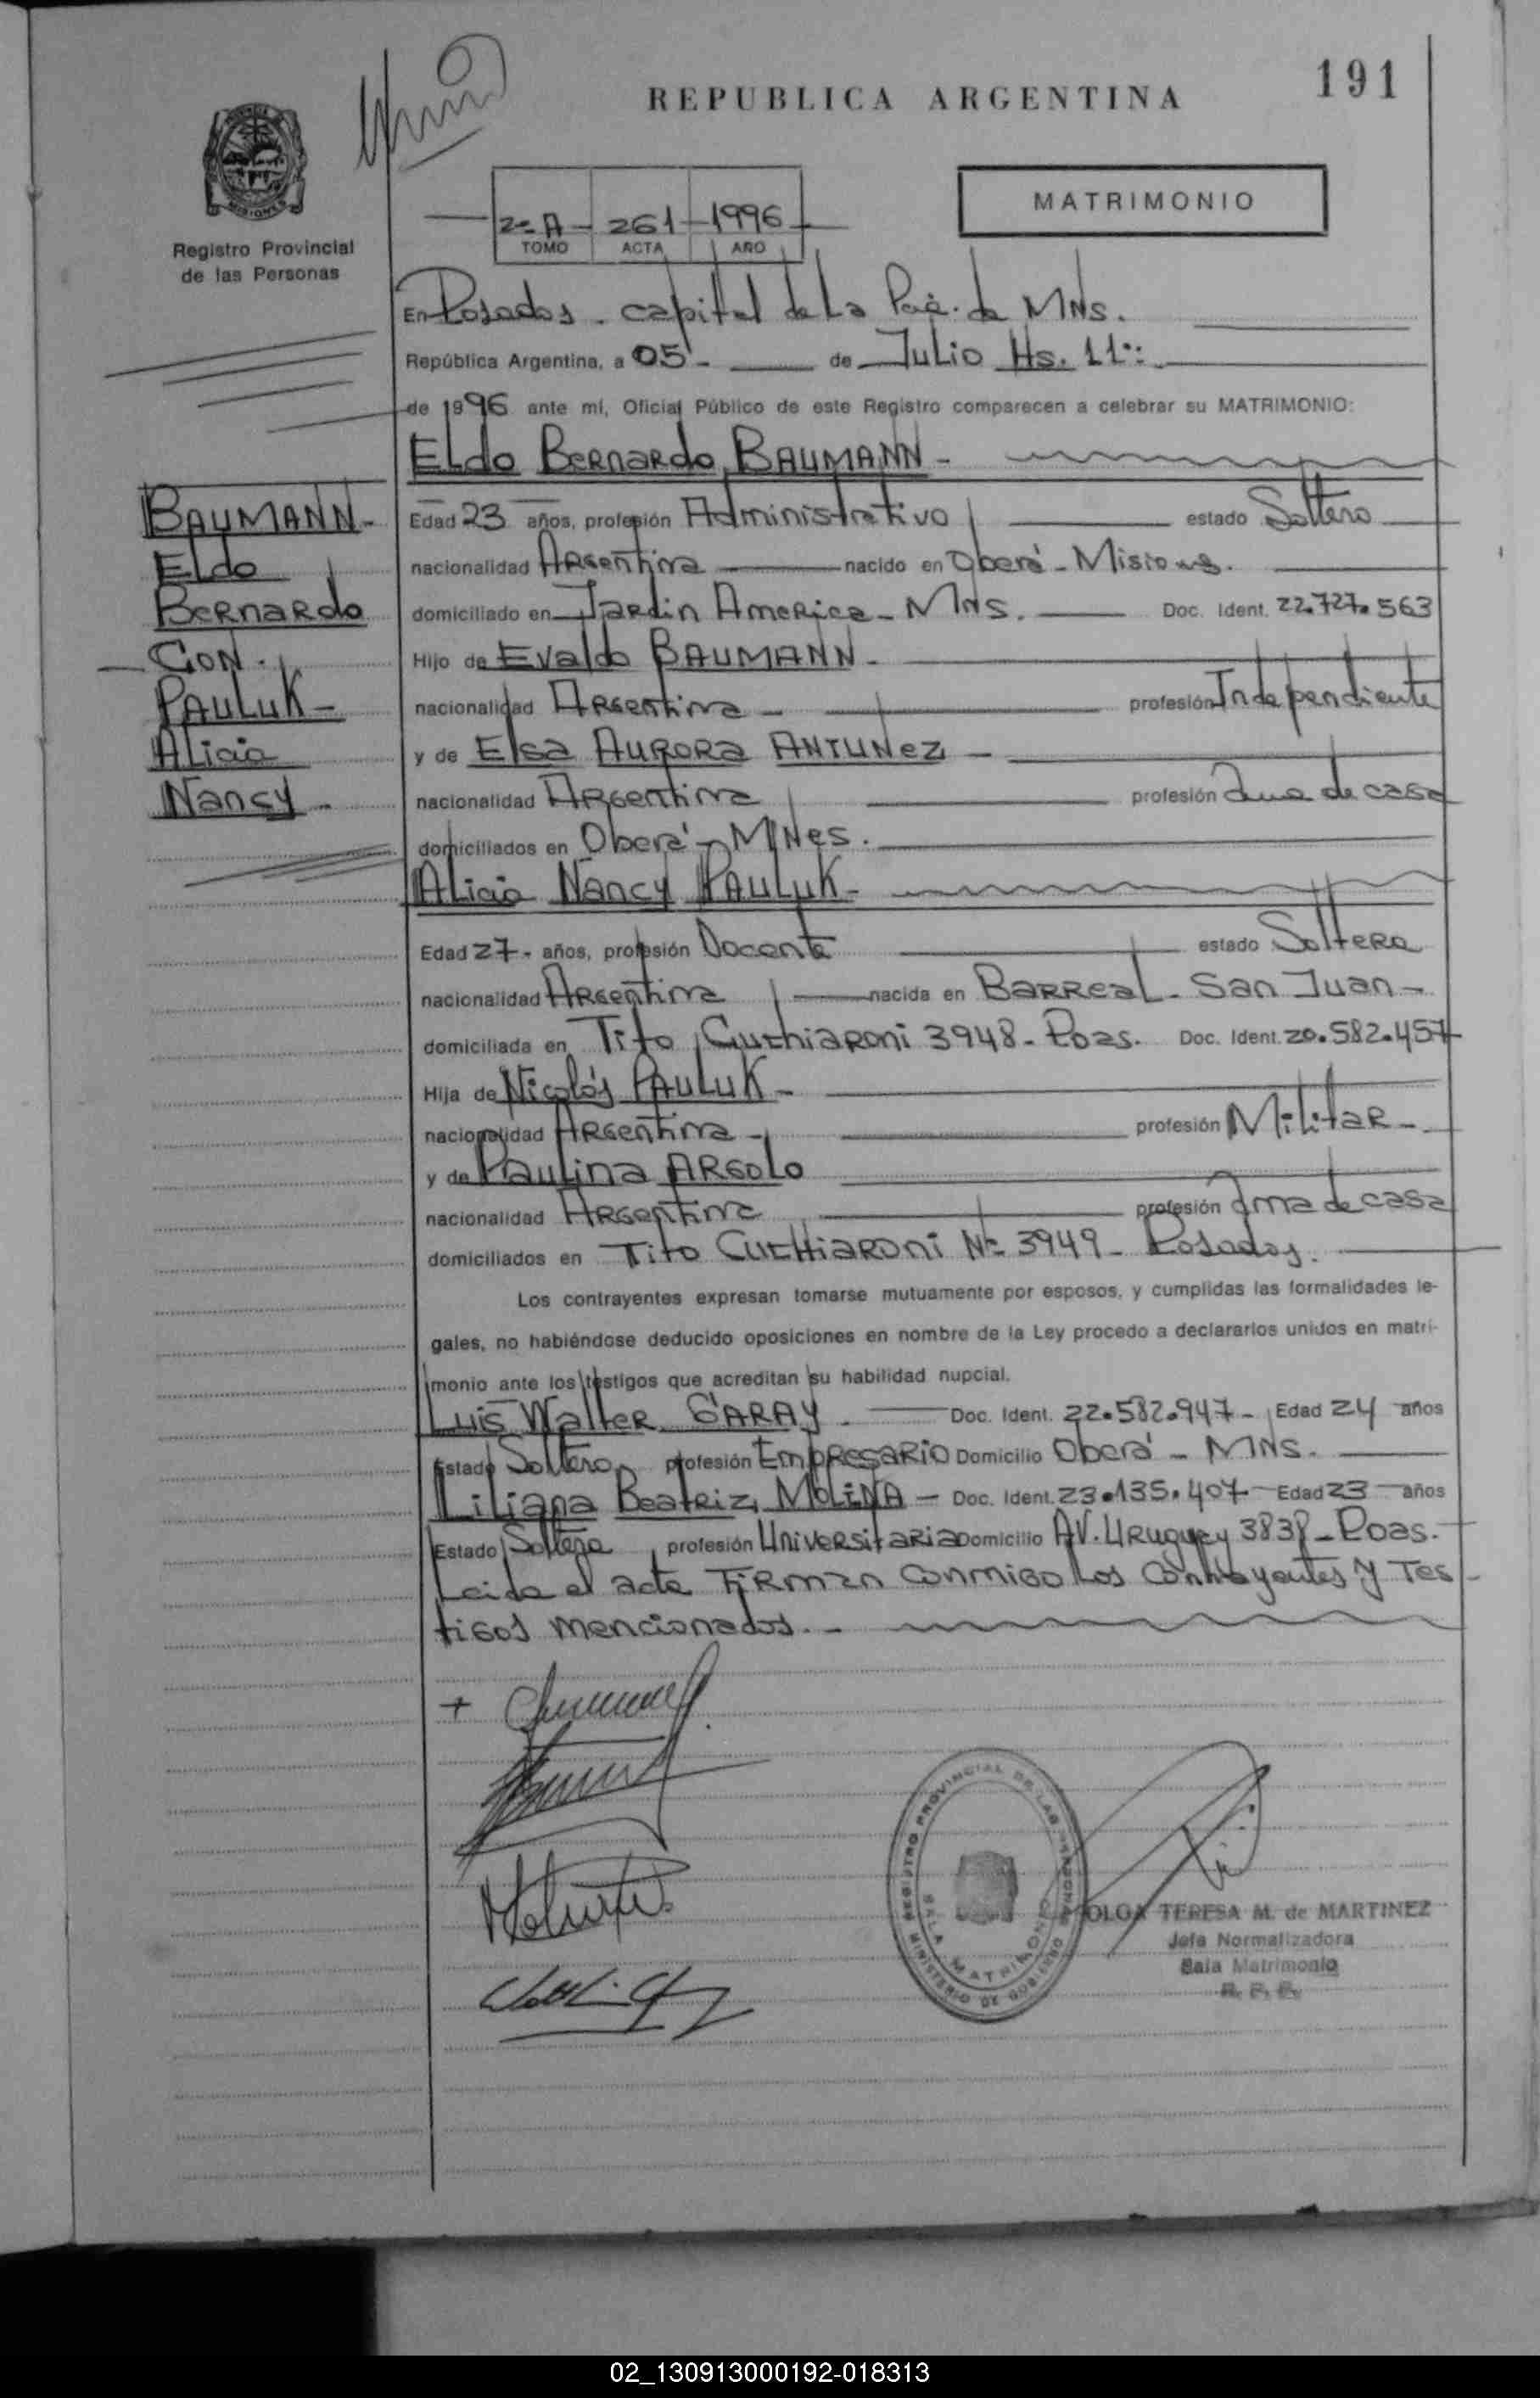 191
REPUBLICA ARGENTINA
MISIONES
Registro Provincial
de las Personas
MATRIMONIO
2º A - 261 - 1996
TOMO ACTA AÑO
En Posadas - capital de La Pcia. de MNS.
República Argentina, a 05 - de Julio Hs. 11:
de 1996 ante mí, Oficial Público de este Registro comparecen a celebrar su MATRIMONIO:
Eldo Bernardo BAUMANN -
BAUMANN -
Eldo
Bernardo
CON.
PAULUK -
Alicia
Nancy -
Edad 23 años, profesión Administrativo estado Soltero
nacionalidad Argentina nacido en Oberá - Misiones.
domiciliado en Jardin America - MNS. Doc. Ident. 22.727.563
Hijo de Evaldo BAUMANN -
nacionalidad Argentina - profesión Independiente
y de Elsa Aurora ANTUNEZ -
nacionalidad Argentina profesión Ama de casa
domiciliados en Oberá - MNes.
Alicia Nancy PAULUK -
Edad 27 - años, profesión Docente estado Soltera
nacionalidad Argentina nacida en Barreal - San Juan -
domiciliada en Tito Cuchiaroni 3948 - Poas. Doc. Ident. 20.582.457
Hija de Nicolás PAULUK -
nacionalidad Argentina - profesión Militar -
y de Paulina ARGOLO
nacionalidad Argentina profesión Ama de casa
domiciliados en Tito Cuchiaroni Nº 3949 - Posadas.
Los contrayentes expresan tomarse mutuamente por esposos, y cumplidas las formalidades le-
gales, no habiéndose deducido oposiciones en nombre de la Ley procedo a declararlos unidos en matri-
monio ante los testigos que acreditan su habilidad nupcial.
Luis Walter GARAY - Doc. Ident. 22.582.947 - Edad 24 años
Estado Soltero profesión Empresario Domicilio Oberá - MNS.
Liliana Beatriz MOLINA - Doc. Ident. 23.135.407 - Edad 23 años
Estado Soltera profesión Universitaria Domicilio AV. Uruguay 3838 - Poas.
Leida el acta Firman conmigo Los Contrayentes y Tes -
tigos mencionados. -
REGISTRO PROVINCIAL DE LAS PERSONAS
SALA MATRIMONIO
MINISTERIO DE GOBIERNO
OLGA TERESA M. de MARTINEZ
Jefa Normalizadora
Sala Matrimonio
R. P. P.
02_130913000192-018313